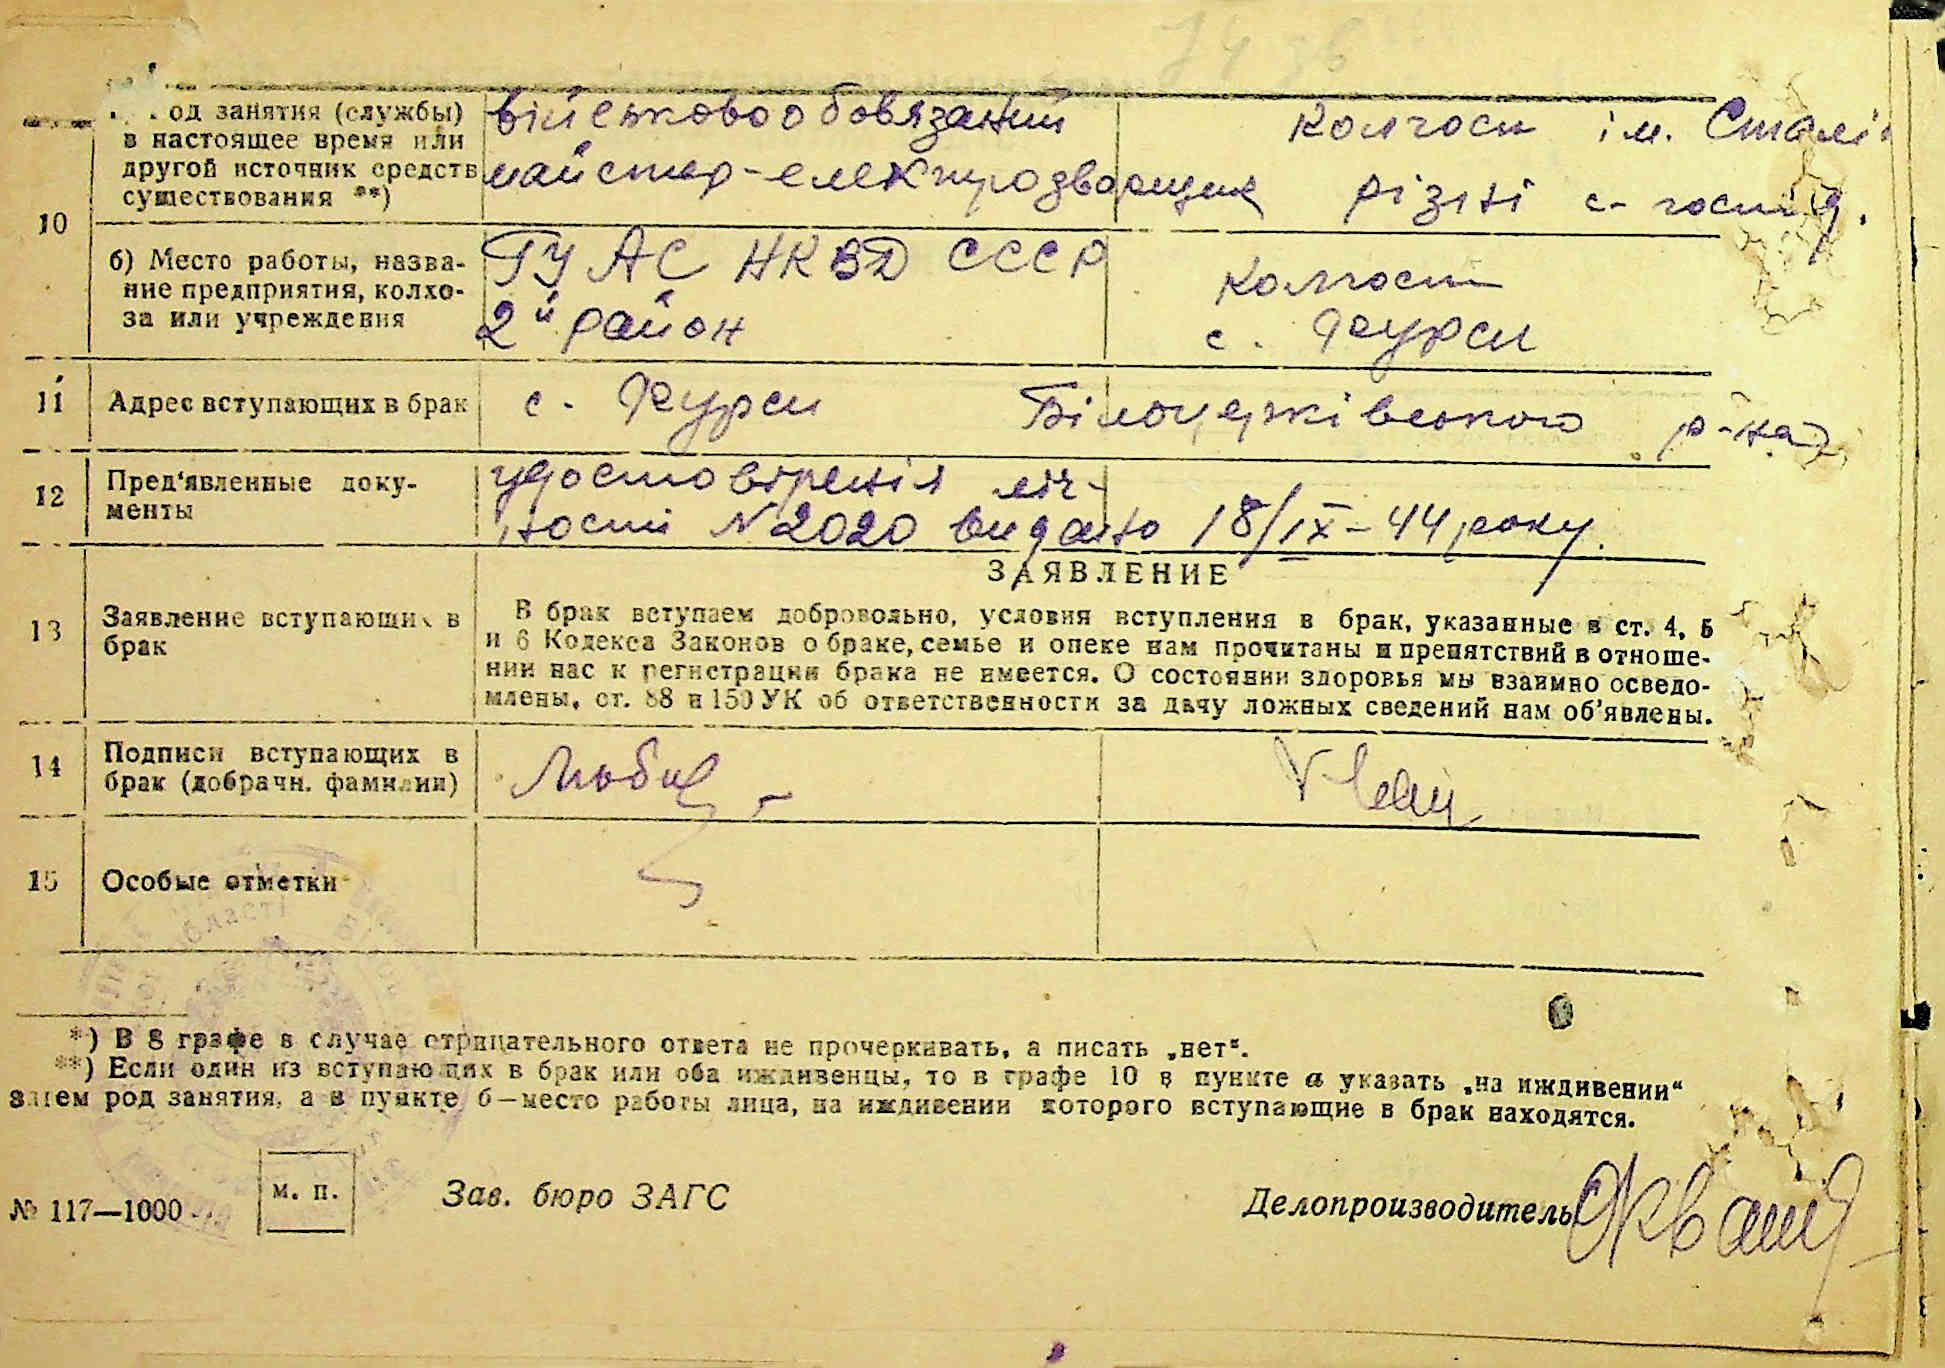 од занятия (службы)
в настоящее время или
другой источник средств
существования **)
військовообовязаний
майстер-електрозварщик
Колгосп ім. Сталі
різні с-госп
10
б) Место работы, назва-
ние предприятия, колхо-
за или учреждения
ГУАС НКВД СССР
2й район
Колгосп
с. Фурси
11
Адрес вступающих в брак
с. Фурси Білоцерківського р-на
12
Пред'явленные доку-
менты
удостовіренія лич-
ності N 2020 видано 18/IX-44 року.
ЗАЯВЛЕНИЕ
13
Заявление вступающих в
брак
В брак вступаем добровольно, условия вступления в брак, указанные в ст. 4, 5
и 6 Кодекса Законов о браке, семье и опеке нам прочитаны и препятствий в отноше-
нии нас к регистрации брака не имеется. О состоянии здоровья мы взаимно осведо-
млены, ст. 88 и 150 УК об ответственности за дачу ложных сведений нам об'явлены.
14
Подписи вступающих в
брак (добрачн. фамилии)
15
Особые отметки
*) В 8 графе в случае отрицательного ответа не прочеркивать, а писать „нет“.
**) Если один из вступающих в брак или оба иждивенцы, то в графе 10 в пункте а указать „на иждивении“
затем род занятия, а в пункте б—место работы лица, на иждивении которого вступающие в брак находятся.
№ 117—1000
м. п.
Зав. бюро ЗАГС
Делопроизводитель